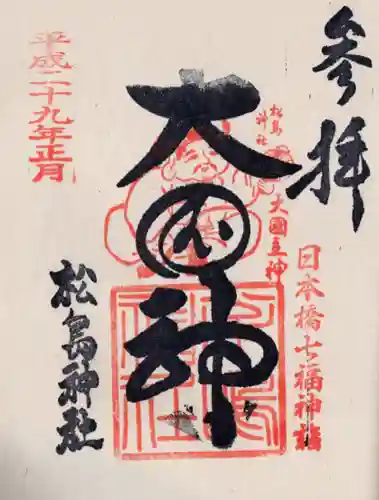 参拝
日本橋七福神詣
松島神社
大国主神
大国神
松島神社
平成二十九年正月